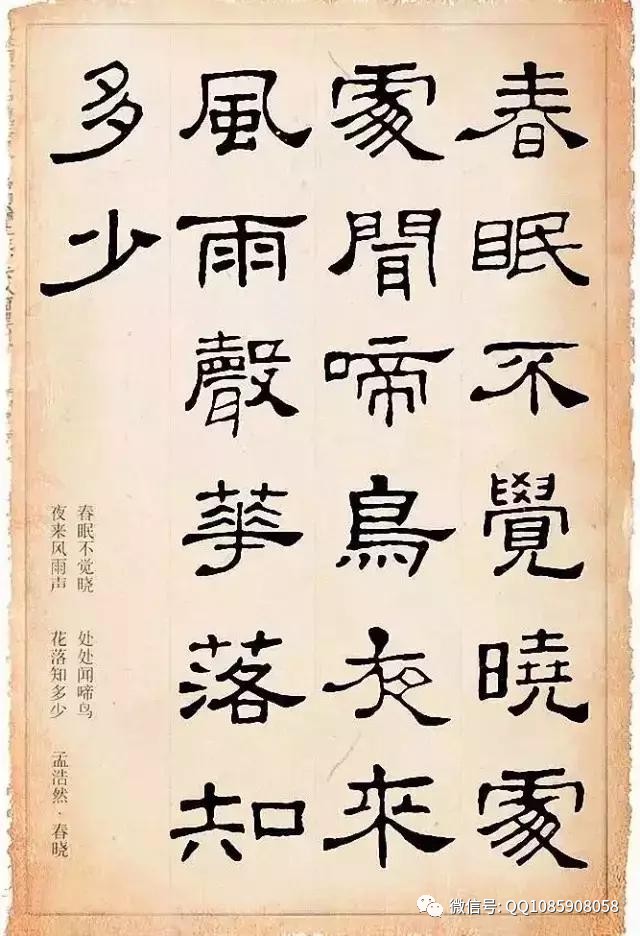 春眠不覺曉處
處聞啼鳥夜來
風雨聲華落知
多少
春眠不觉晓 处处闻啼鸟
夜来风雨声 花落知多少 孟浩然·春晓
微信号: QQ1085908058